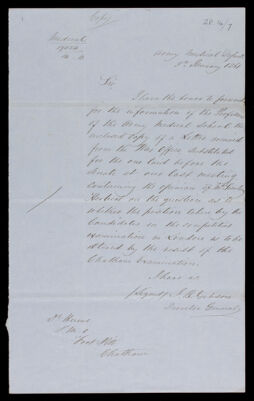 Copy
Medical
Army Medical Departt
January 1861
Sir
I have the honor to forward
for the information of the Professors
of the Army Medical School the
enclosed Copy of a Letter received
from the War Office substituted
for the one laid before the
Senate at our last meeting
containing the opinion of Mr
Herbert on the question as to
whether the position taken by the
Candidates on the competitive
examination in London is to be
altered by the result of the
Chatham Examination.
I have &c
(Signed) J. B. Gibson
Director General
Dr
P. M. O
Fort Pitt
Chatham